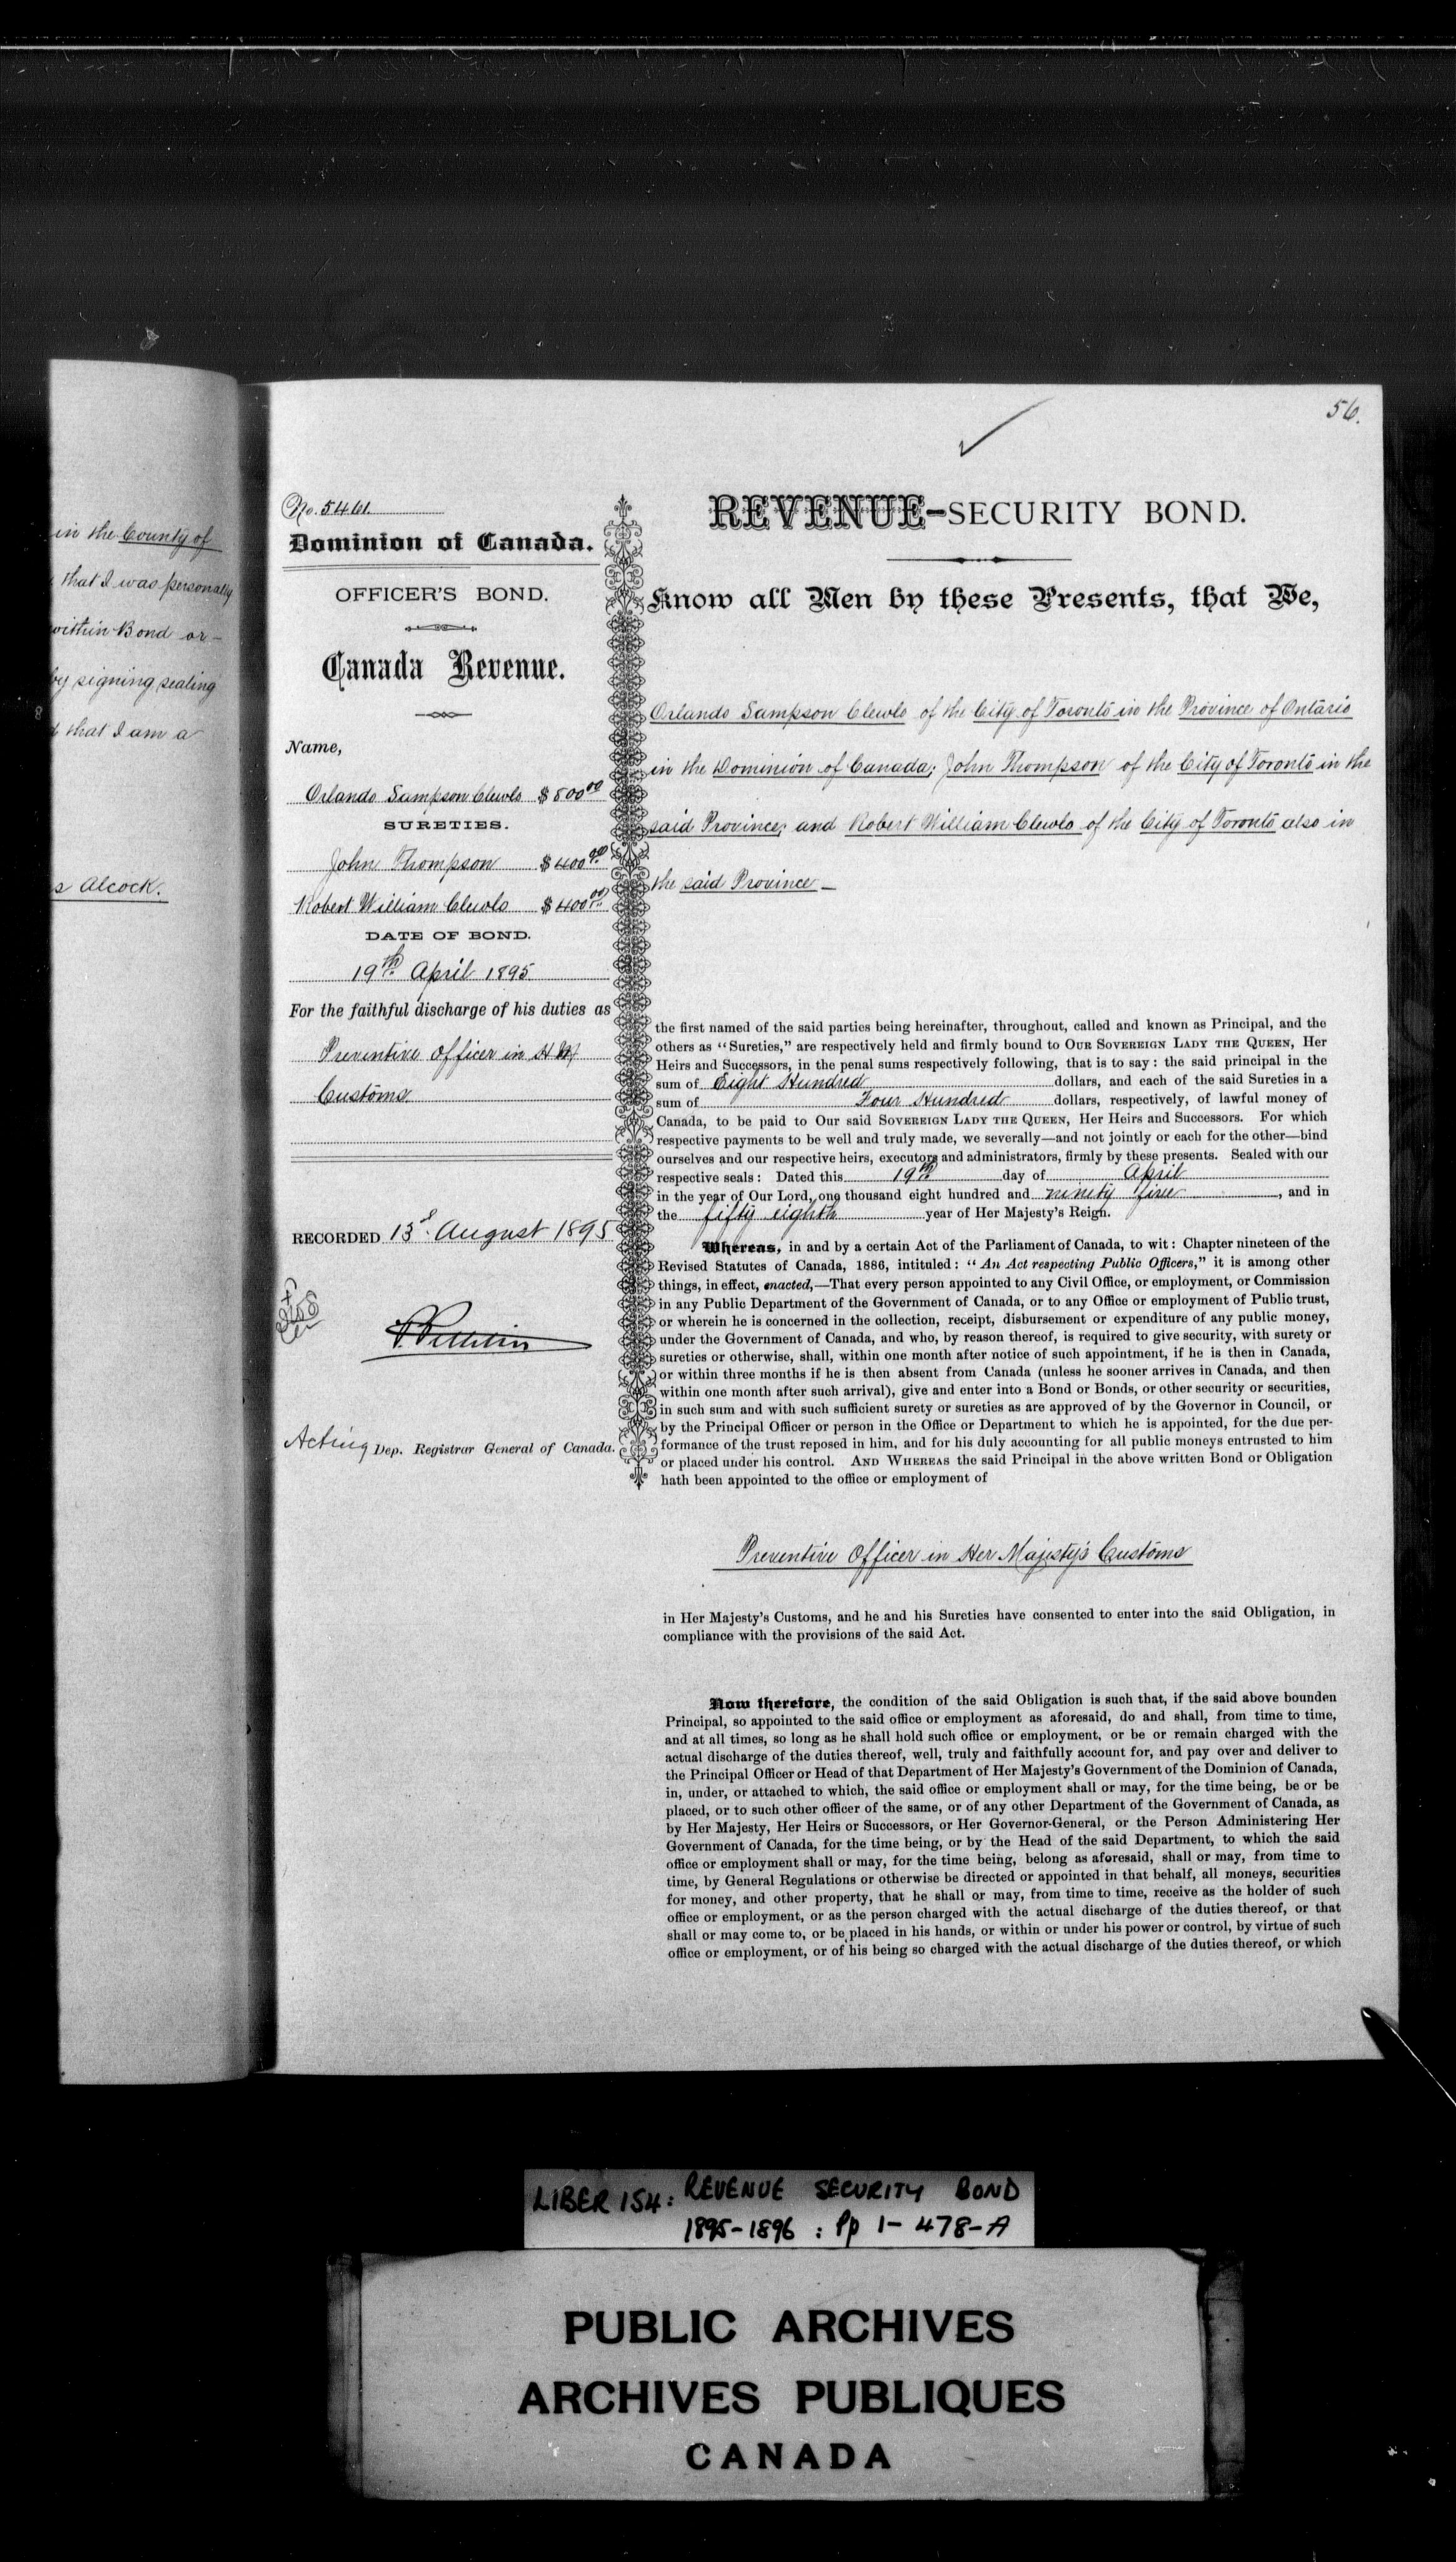 56.
in the County of
that I was personally
within Bond or-
by signing sealing
that I am a
Alcock.
No. 5461.
Dominion of Canada.
OFFICER'S BOND.
Canada Revenue.
Name,
Orlando Sampson Clewlo $800 00
SURETIES.
John Thompson $400 00
Robert William Clewlo $400 00
DATE OF BOND.
19th April 1895
For the faithful discharge of his duties as
Preventive Officer in H M
Customs
RECORDED 13th August 1895
Acting Dep. Registrar General of Canada.
REVENUE-SECURITY BOND.
Know all Men by these Presents, that We,
Orlando Sampson Clewlo of the City of Toronto in the Province of Ontario
in the Dominion of Canada; John Thompson of the City of Toronto in the
said Province; and Robert William Clewlo of the City of Toronto also in
the said Province —
the first named of the said parties being hereinafter, throughout, called and known as Principal, and the
others as "Sureties," are respectively held and firmly bound to OUR SOVEREIGN LADY THE QUEEN, Her
Heirs and Successors, in the penal sums respectively following, that is to say: the said principal in the
sum of Eight Hundred dollars, and each of the said Sureties in a
sum of Four Hundred dollars, respectively, of lawful money of
Canada, to be paid to Our said SOVEREIGN LADY THE QUEEN, Her Heirs and Successors. For which
respective payments to be well and truly made, we severally—and not jointly or each for the other—bind
ourselves and our respective heirs, executors and administrators, firmly by these presents. Sealed with our
respective seals: Dated this 19th day of April
in the year of Our Lord, one thousand eight hundred and ninety five, and in
the fifty eighth year of Her Majesty's Reign.
Whereas, in and by a certain Act of the Parliament of Canada, to wit: Chapter nineteen of the
Revised Statutes of Canada, 1886, intituled: "An Act respecting Public Officers," it is among other
things, in effect, enacted,—That every person appointed to any Civil Office, or employment, or Commission
in any Public Department of the Government of Canada, or to any Office or employment of Public trust,
or wherein he is concerned in the collection, receipt, disbursement or expenditure of any public money,
under the Government of Canada, and who, by reason thereof, is required to give security, with surety or
sureties or otherwise, shall, within one month after notice of such appointment, if he is then in Canada,
or within three months if he is then absent from Canada (unless he sooner arrives in Canada, and then
within one month after such arrival), give and enter into a Bond or Bonds, or other security or securities,
in such sum and with such sufficient surety or sureties as are approved of by the Governor in Council, or
by the Principal Officer or person in the Office or Department to which he is appointed, for the due per-
formance of the trust reposed in him, and for his duly accounting for all public moneys entrusted to him
or placed under his control. AND WHEREAS the said Principal in the above written Bond or Obligation
hath been appointed to the office or employment of
Preventive Officer in Her Majesty's Customs
in Her Majesty's Customs, and he and his Sureties have consented to enter into the said Obligation, in
compliance with the provisions of the said Act.
Now therefore, the condition of the said Obligation is such that, if the said above bounden
Principal, so appointed to the said office or employment as aforesaid, do and shall, from time to time,
and at all times, so long as he shall hold such office or employment, or be or remain charged with the
actual discharge of the duties thereof, well, truly and faithfully account for, and pay over and deliver to
the Principal Officer or Head of that Department of Her Majesty's Government of the Dominion of Canada,
in, under, or attached to which, the said office or employment shall or may, for the time being, be or be
placed, or to such other officer of the same, or of any other Department of the Government of Canada, as
by Her Majesty, Her Heirs or Successors, or Her Governor-General, or the Person Administering Her
Government of Canada, for the time being, or by the Head of the said Department, to which the said
office or employment shall or may, for the time being, belong as aforesaid, shall or may, from time to
time, by General Regulations or otherwise be directed or appointed in that behalf, all moneys, securities
for money, and other property, that he shall or may, from time to time, receive as the holder of such
office or employment, or as the person charged with the actual discharge of the duties thereof, or that
shall or may come to, or be placed in his hands, or within or under his power or control, by virtue of such
office or employment, or of his being so charged with the actual discharge of the duties thereof, or which
LIBER 154: REVENUE SECURITY BOND
1895-1896 : Pp 1-478-A
PUBLIC ARCHIVES
ARCHIVES PUBLIQUES
CANADA